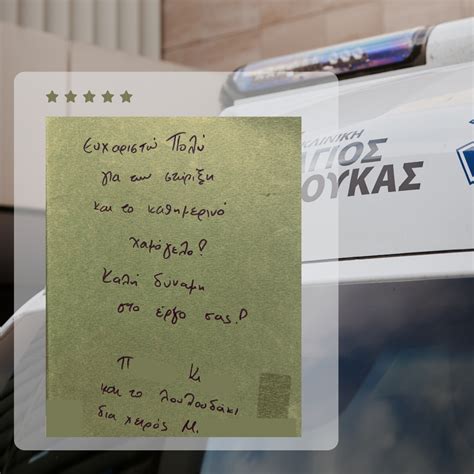 Ευχαριστώ Πολύ
για την στήριξη
και το καθημερινό
χαμόγελο!
Καλή δύναμη
στο έργο σας!
Π Κι
και το λουλουδάκι
δια χειρός Μ.
ΚΛΙΝΙΚΗ
ΑΓΙΟΣ
ΟΥΚΑΣ